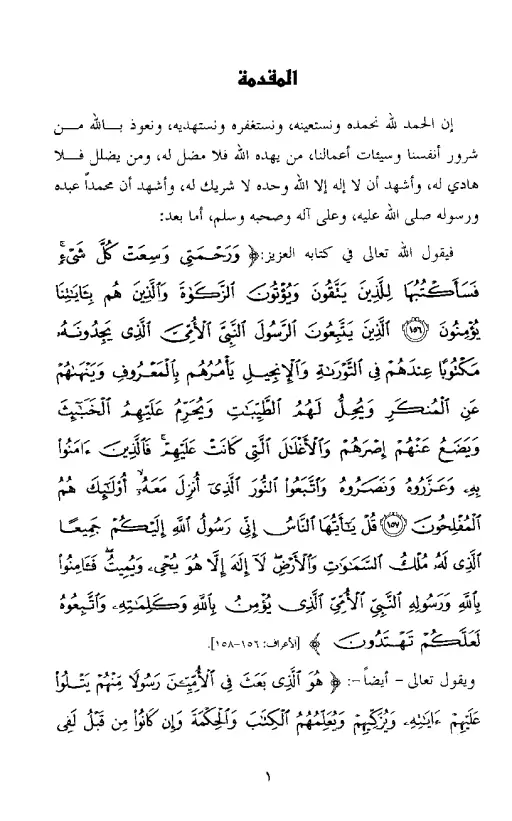 المقدمة
إن الحمد لله نحمده ونستعينه، ونستغفره ونستهديه، ونعوذ بـــالله مـــن
شرور أنفسنا وسيئات أعمالنا، من يهده الله فلا مضل له، ومن يضلل فـــلا
هادي له، وأشهد أن لا إله إلا الله وحده لا شريك له، وأشهد أن محمداً عبده
ورسوله صلى الله عليه، وعلى آله وصحبه وسلم، أما بعد:
فيقول الله تعالى في كتابه العزيز: ﴿ وَرَحْمَتِى وَسِعَتْ كُلَّ شَىْءٍ ۚ
فَسَأَكْتُبُهَا لِلَّذِينَ يَتَّقُونَ وَيُؤْتُونَ ٱلزَّكَوٰةَ وَٱلَّذِينَ هُم بِـَٔايَـٰتِنَا
يُؤْمِنُونَ ﴿١٥٦﴾ ٱلَّذِينَ يَتَّبِعُونَ ٱلرَّسُولَ ٱلنَّبِىَّ ٱلْأُمِّىَّ ٱلَّذِى يَجِدُونَهُۥ
مَكْتُوبًا عِندَهُمْ فِى ٱلتَّوْرَىٰةِ وَٱلْإِنجِيلِ يَأْمُرُهُم بِٱلْمَعْرُوفِ وَيَنْهَىٰهُمْ
عَنِ ٱلْمُنكَرِ وَيُحِلُّ لَهُمُ ٱلطَّيِّبَـٰتِ وَيُحَرِّمُ عَلَيْهِمُ ٱلْخَبَـٰٓئِثَ
وَيَضَعُ عَنْهُمْ إِصْرَهُمْ وَٱلْأَغْلَـٰلَ ٱلَّتِى كَانَتْ عَلَيْهِمْ ۚ فَٱلَّذِينَ ءَامَنُوا۟
بِهِۦ وَعَزَّرُوهُ وَنَصَرُوهُ وَٱتَّبَعُوا۟ ٱلنُّورَ ٱلَّذِىٓ أُنزِلَ مَعَهُۥٓ ۙ أُو۟لَـٰٓئِكَ هُمُ
ٱلْمُفْلِحُونَ ﴿١٥٧﴾ قُلْ يَـٰٓأَيُّهَا ٱلنَّاسُ إِنِّى رَسُولُ ٱللَّهِ إِلَيْكُمْ جَمِيعًا
ٱلَّذِى لَهُۥ مُلْكُ ٱلسَّمَـٰوَٰتِ وَٱلْأَرْضِ ۖ لَآ إِلَـٰهَ إِلَّا هُوَ يُحْىِۦ وَيُمِيتُ ۖ فَـَٔامِنُوا۟
بِٱللَّهِ وَرَسُولِهِ ٱلنَّبِىِّ ٱلْأُمِّىِّ ٱلَّذِى يُؤْمِنُ بِٱللَّهِ وَكَلِمَـٰتِهِۦ وَٱتَّبِعُوهُ
لَعَلَّكُمْ تَهْتَدُونَ ﴾ [الأعراف: ١٥٦-١٥٨].
ويقول تعالى - أيضاً -: ﴿ هُوَ ٱلَّذِى بَعَثَ فِى ٱلْأُمِّيِّـۧنَ رَسُولًا مِّنْهُمْ يَتْلُوا۟
عَلَيْهِمْ ءَايَـٰتِهِۦ وَيُزَكِّيهِمْ وَيُعَلِّمُهُمُ ٱلْكِتَـٰبَ وَٱلْحِكْمَةَ وَإِن كَانُوا۟ مِن قَبْلُ لَفِى
١